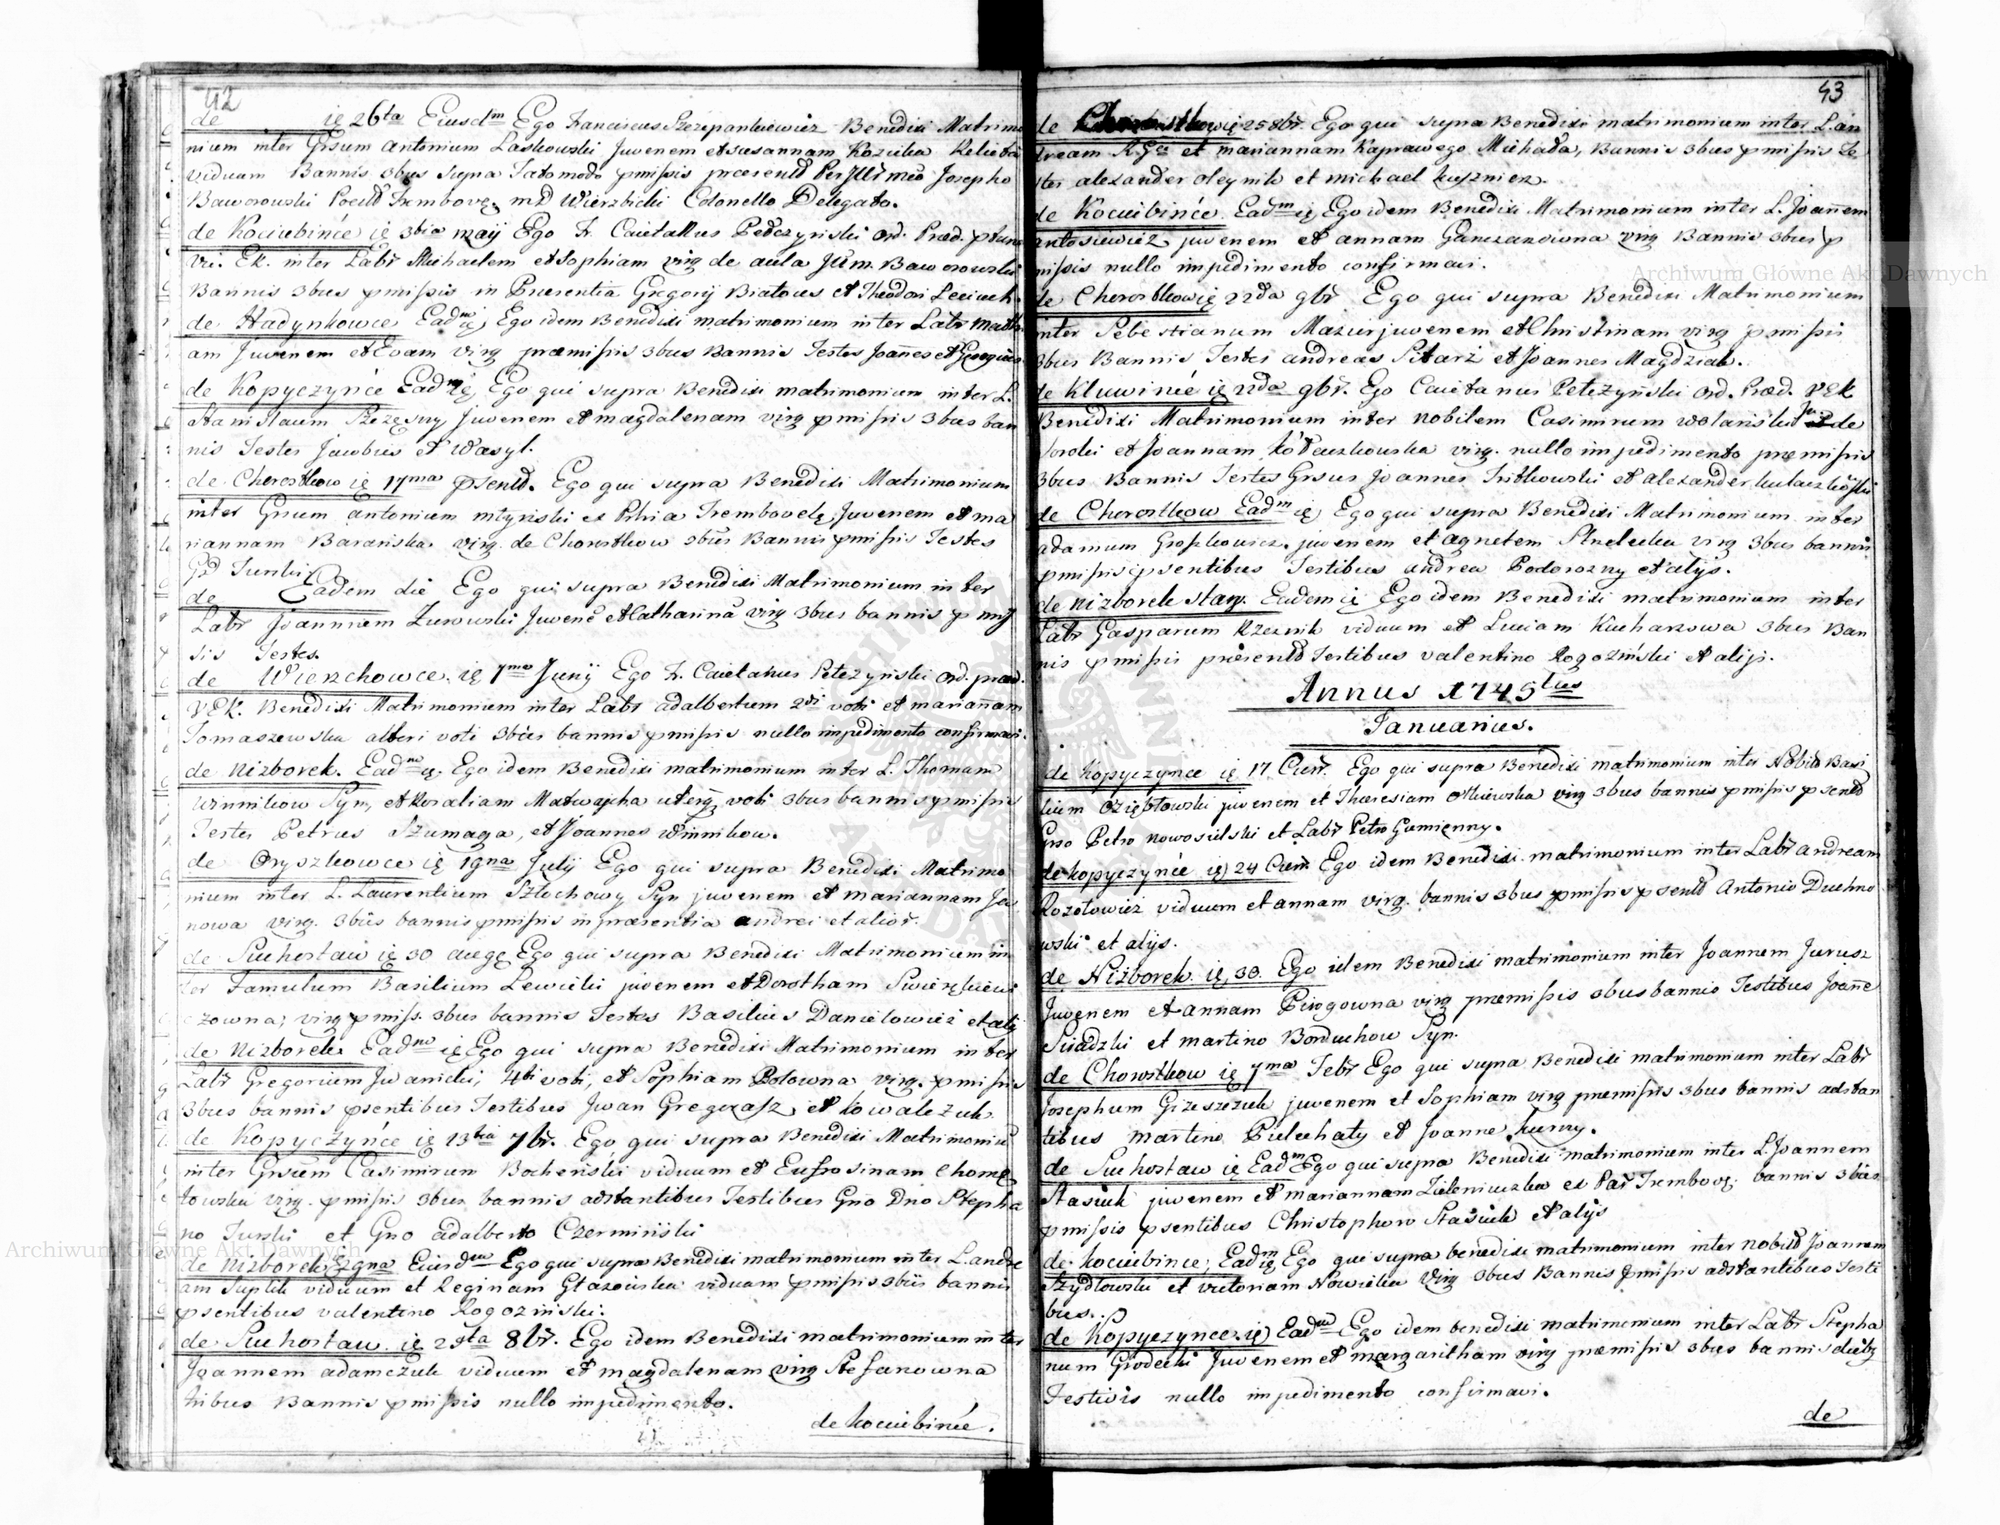 42
de ię 26ta Eiusdm Ego Franciscus Szczepankiewicz Benedixi Matrimo
nium inter Grsum Antonium Laskowski Juvenem et Susannam Relicta
viduam Bannis 3bus supra pmissis Josepho
Baworowski Trembov. Wierzbicki Colonello Delegato.
de Kociubińce ię 3tia maij Ego Fr. Caietanus Petczyński Ord. Præd.
Vic. Ek. inter Labr Michaelem et Sophiam virg de aula Baworowski
Bannis 3bus pmissis in Præsentia Gregorij et Theodori
de Hadynkowce Eadm ię Ego idem Benedixi matrimonium inter Labr
am Juvenem et Evam virg præmissis 3bus Bannis Testes Joannes et
de Kopyczyńce Eadm ię Ego qui supra Benedixi matrimonium inter L.
Stanislaum Juvenem et Magdalenam virg pmissis 3bus ban
nis Testes Jacobus et Wasyl.
de Chorostkow ię 17ma psentd. Ego qui supra Benedixi Matrimonium
inter Grsum Antonium młyński Juvenem et Ma
riannam Barańska virg. de Chorostkow 3bus Bannis pmissis Testes
de Eadem die Ego qui supra Benedixi Matrimonium inter
Labr Joannem Żurowski Juvenē et Catharinā virg 3bus bannis p mis
sis Testes.
de Wierzchowce ię 7ma Junij Ego Fr. Caietanus Petczyński Ord. præd.
VEk. Benedixi Matrimonium inter Labr adalbertum 2di voti et mariannam
Tomaszewska alteri voti 3bus bannis pmissis nullo impedimento confirmavi.
de Nizborek. Eadm ię Ego idem Benedixi matrimonium inter L. Thomam
Winnikow Syn, et voti 3bus bannis pmissis
Testes Petrus Szumaga, et Joannes Winnikow.
de Oryszkowce ię 19na Julij Ego qui supra Benedixi Matrimo
nium inter L. Laurentium Syn juvenem et mariannam Ja
nowa virg. 3bus bannis pmissis in præsentia andrei et alior.
de Suchostaw ię 30 Ego qui supra Benedixi Matrimonium in
ter Famulum Basilium Lewicki juvenem et Dorotham
czowna, virg pmiss. 3bus bannis Testes Basilius Daniełowicz et alij
de Nizborek Eadm ię Ego qui supra Benedixi Matrimonium inter
Labr Gregorium Jwanicki, 4ti voti, et Sophiam Botowna virg. pmissis
3bus bannis psentibus Testibus Jwan et Kowalczuk.
de Kopyczyńce ię 13tia 7br. Ego qui supra Benedixi Matrimoniū
inter Grsum Casimirum Bocheński viduum et Eufrosinam Chomę
towska virg. pmissis 3bus bannis adstantibus Testibus Gno Dno Stepha
no Turski et Gno adalberto Czermiński
de Nizborek Eiusdm Ego qui supra Benedixi matrimonium inter L. andre
am viduum et Reginam viduam pmissis 3bus bannis
psentibus valentino Rogoziński.
de Suchostaw ię 8br. Ego idem Benedixi matrimonium inter
Joannem adamczuk viduum et magdalenam virg Stefanowna
tribus Bannis pmissis nullo impedimento.
de kociubińce.
43
de ię 25 8br. Ego qui supra Benedixi matrimonium inter L. an
dream et mariannam Michała, Bannis 3bus pmissis Te
stes alexander oleynik et michael kusznierz.
de Kociubińce Eadm ię Ego idem Benedixi Matrimonium inter L. Joannem
antosiewicz juvenem et annam Ganczarowna virg Bannis 3bus p
missis nullo impedimento confirmavi.
de Chorostkow ię 22da 9br Ego qui supra Benedixi Matrimonium
inter Sebestianum Mazur juvenem et Christinam virg pmissis
3bus Bannis Testes andreas Sitarz et Joannes Magdziak.
de Kluwińce ię 22da 9br. Ego Caietanus Petczyński Ord. Præd. VEK
Benedixi Matrimonium inter nobilem Casimirum Wolański de
et Joannam virg. nullo impedimento præmissis
3bus Bannis Testes Grsus Joannes et alexander
de Chorostkow Eadm ię Ego qui supra Benedixi Matrimonium inter
adamum juvenem et agnetem Strelecka virg 3bus bannis
pmissis psentibus Testibus andrea Podorozny et alijs.
de Nizborek stary. Eadem ię Ego idem Benedixi matrimonium inter
Labr Gasparum Rzeznik viduum et Luciam Kucharzowa 3bus Ban
nis pmissis præsentd Testibus valentino Rogoziński et alijs.
Annus 1745tus
Januarius.
de Kopyczynce ię 17 Cur. Ego qui supra Benedixi matrimonium inter Nobild Basi
lium juvenem et Theresiam virg 3bus bannis pmissis psentd
Gnso Petro Nowosielski et Labr Petro Gumienny.
de kopyczyńce ię 24 Cur. Ego idem Benedixi matrimonium inter Labr andream
Rozotowicz viduum et annam virg. bannis 3bus pmissis psentd Antonio Duchno
wski et alijs.
de Nizborek ię 30. Ego idem Benedixi matrimonium inter Joannem Jurusz
Juvenem et annam Pirogowna virg præmissis 3bus bannis Testibus Joanne
Siadzki et martino Bonduchow Syn.
de Chorostkow ię 7ma Febr Ego qui supra Benedixi matrimonium inter Labr
Josephum Grzeszczuk juvenem et Sophiam virg præmissis 3bus bannis adstan
tibus martino Pielechaty et Joanne
de Suchostaw ię Eadm Ego qui supra Benedixi matrimonium inter L. Joannem
Stasiuk juvenem et mariannam ex Par Trembov. bannis 3bus
pmissis psentibus Christophoro Stasiuk et alijs
de kociubince, Eadm ię Ego qui supra benedixi matrimonium inter nobild Joannem
Szydłowski et victoriam Nowicka virg 3bus Bannis pmissis adstantibus Testi
bus.
de Kopyczynce ię Eadm Ego idem benedixi matrimonium inter Labr Stepha
num Grodecki Juvenem et margaritham virg præmissis 3bus bannis diebus
Festivis nullo impedimento confirmavi.
de
Archiwum Główne Akt Dawnych
Archiwum Główne Akt Dawnych